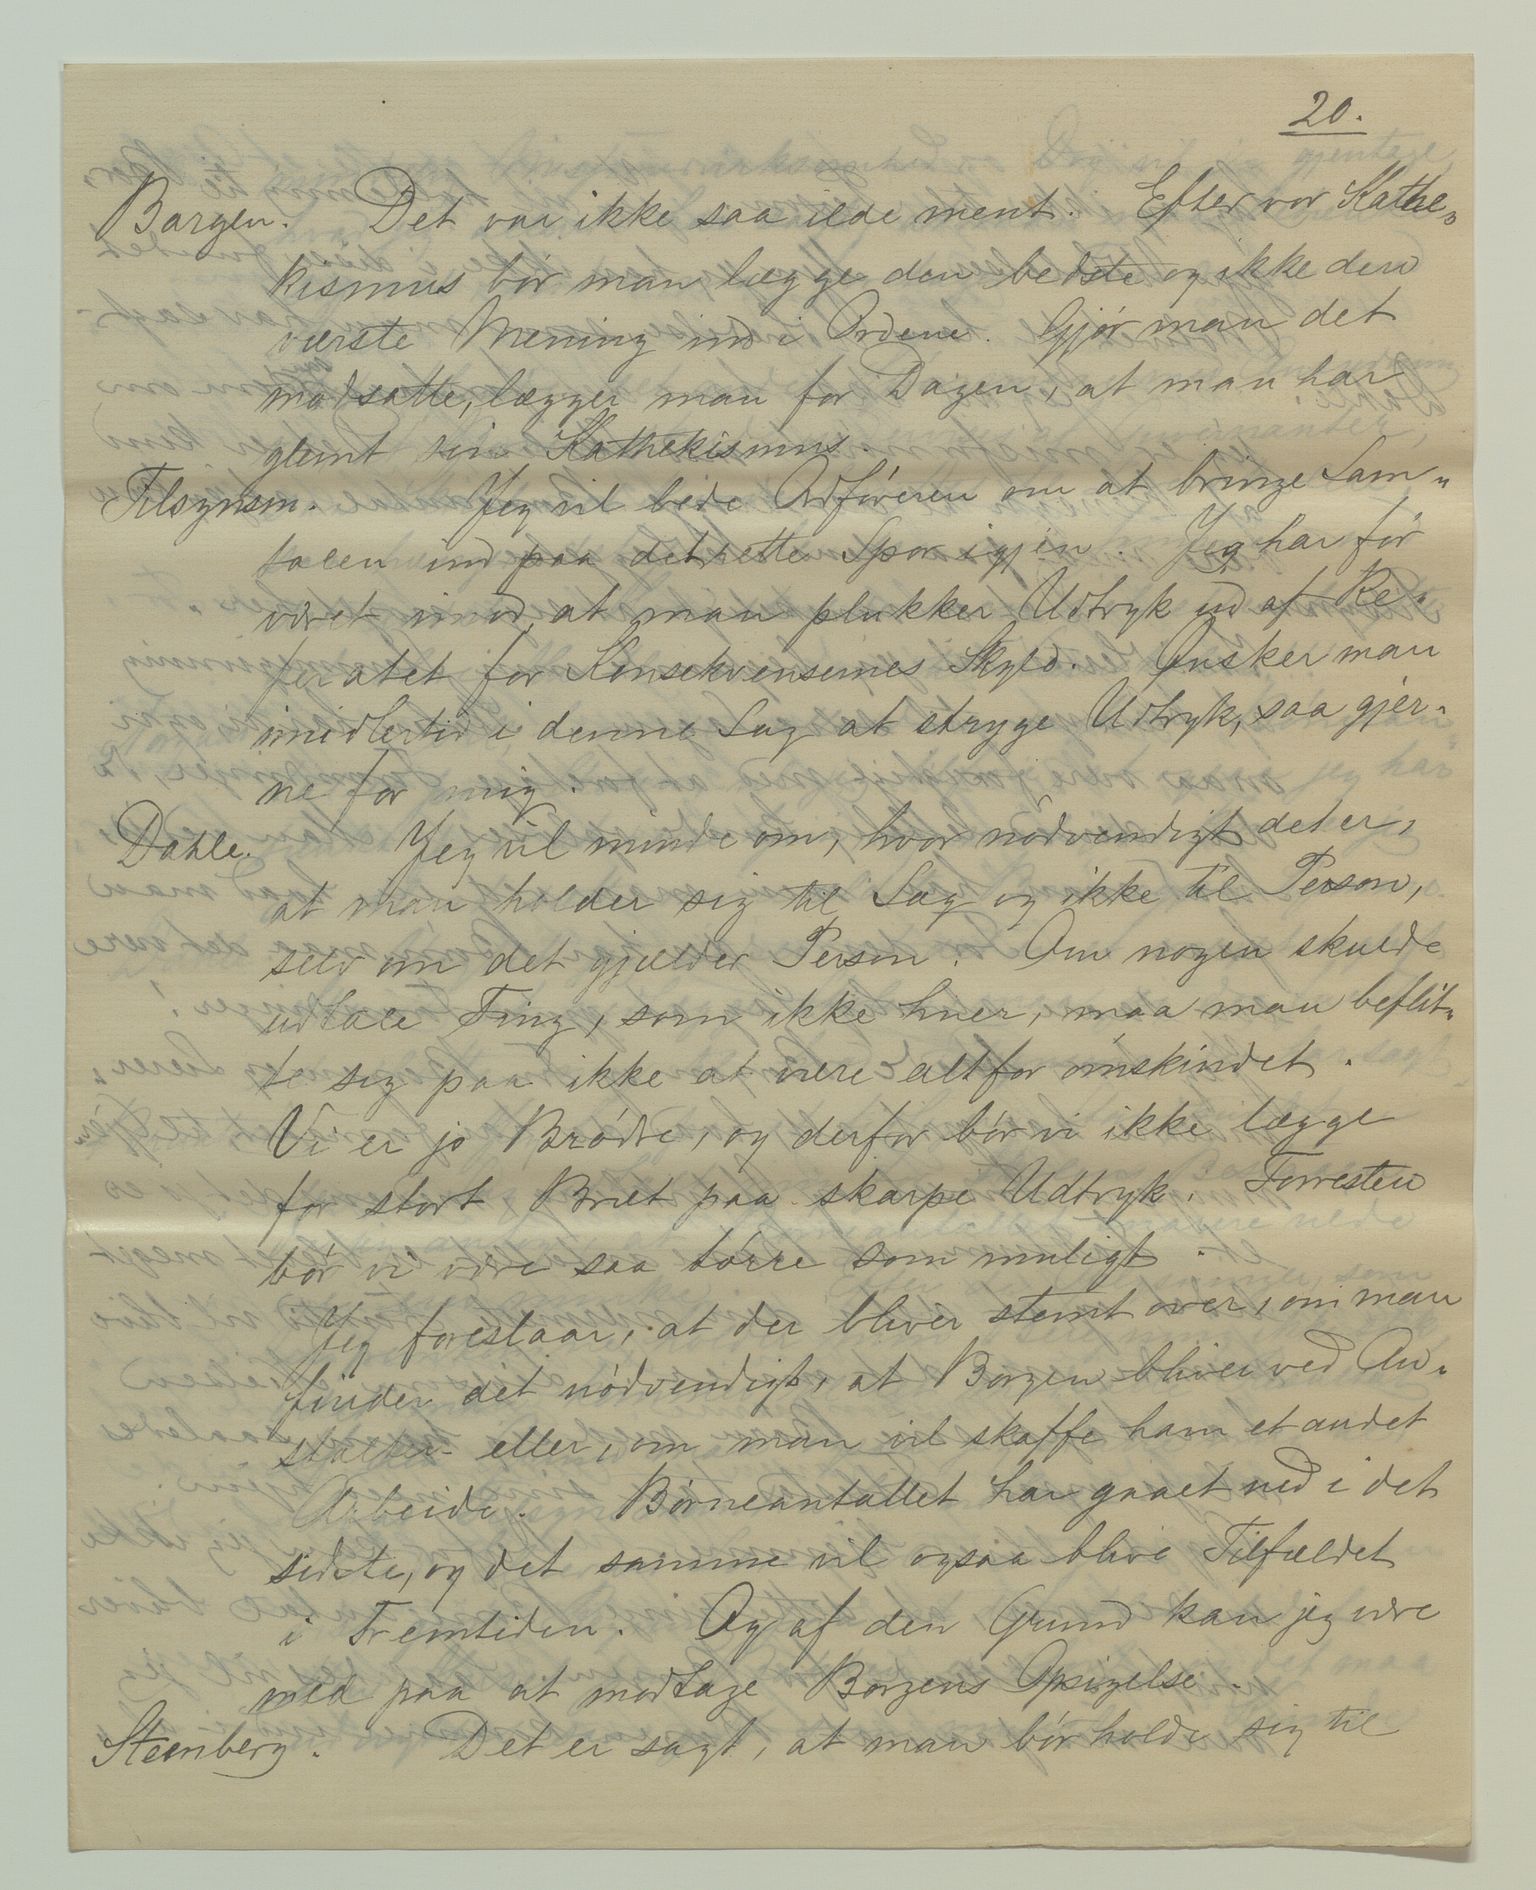 20.
Borgen. Det var ikke saa ilde ment. Efter vor Kathe„
kismus bør man lægge den bedste og ikke den
værste Mening ind i Ordene. Gjør man det
modsatte, lægger man for Dagen, at man har
glemt sin Kathekismus.
Tilsynsm. Jeg vil bede Ordføreren om at bringe Sam„
talen ind paa det rette Spor igjen. Jeg har før
været imod, at man plukker Udtryk ud af Re„
feratet for Konsekvensernes Skyld. Ønsker man
imidlertid i denne Sag at stryge Udtryk, saa gjer„
ne for mig.
Dahle. Jeg vil minde om, hvor nødvendigt det er,
at man holder sig til Sag og ikke til Person,
selv om det gjælder Person. Om nogen skulde
udtale Ting, som ikke huer, maa man beflit„
te sig paa ikke at være altfor ømskindet.
Vi er jo Brødre, og derfor bør vi ikke lægge
for stort Bret paa skarpe Udtryk. Forresten
bør vi være saa tørre som muligt.
Jeg foreslaar, at der bliver stemt over, om man
finder det nødvendigt, at Borgen bliver ved An„
stalten eller, om man vil skaffe ham et andet
Arbeide. Børneantallet har gaaet ned i det
sidste, og det samme vil ogsaa blive Tilfældet
i Fremtiden. Og af den Grund kan jeg være
med paa at modtage Borgens Opsigelse.
Steenberg. Det er sagt, at man bør holde sig til